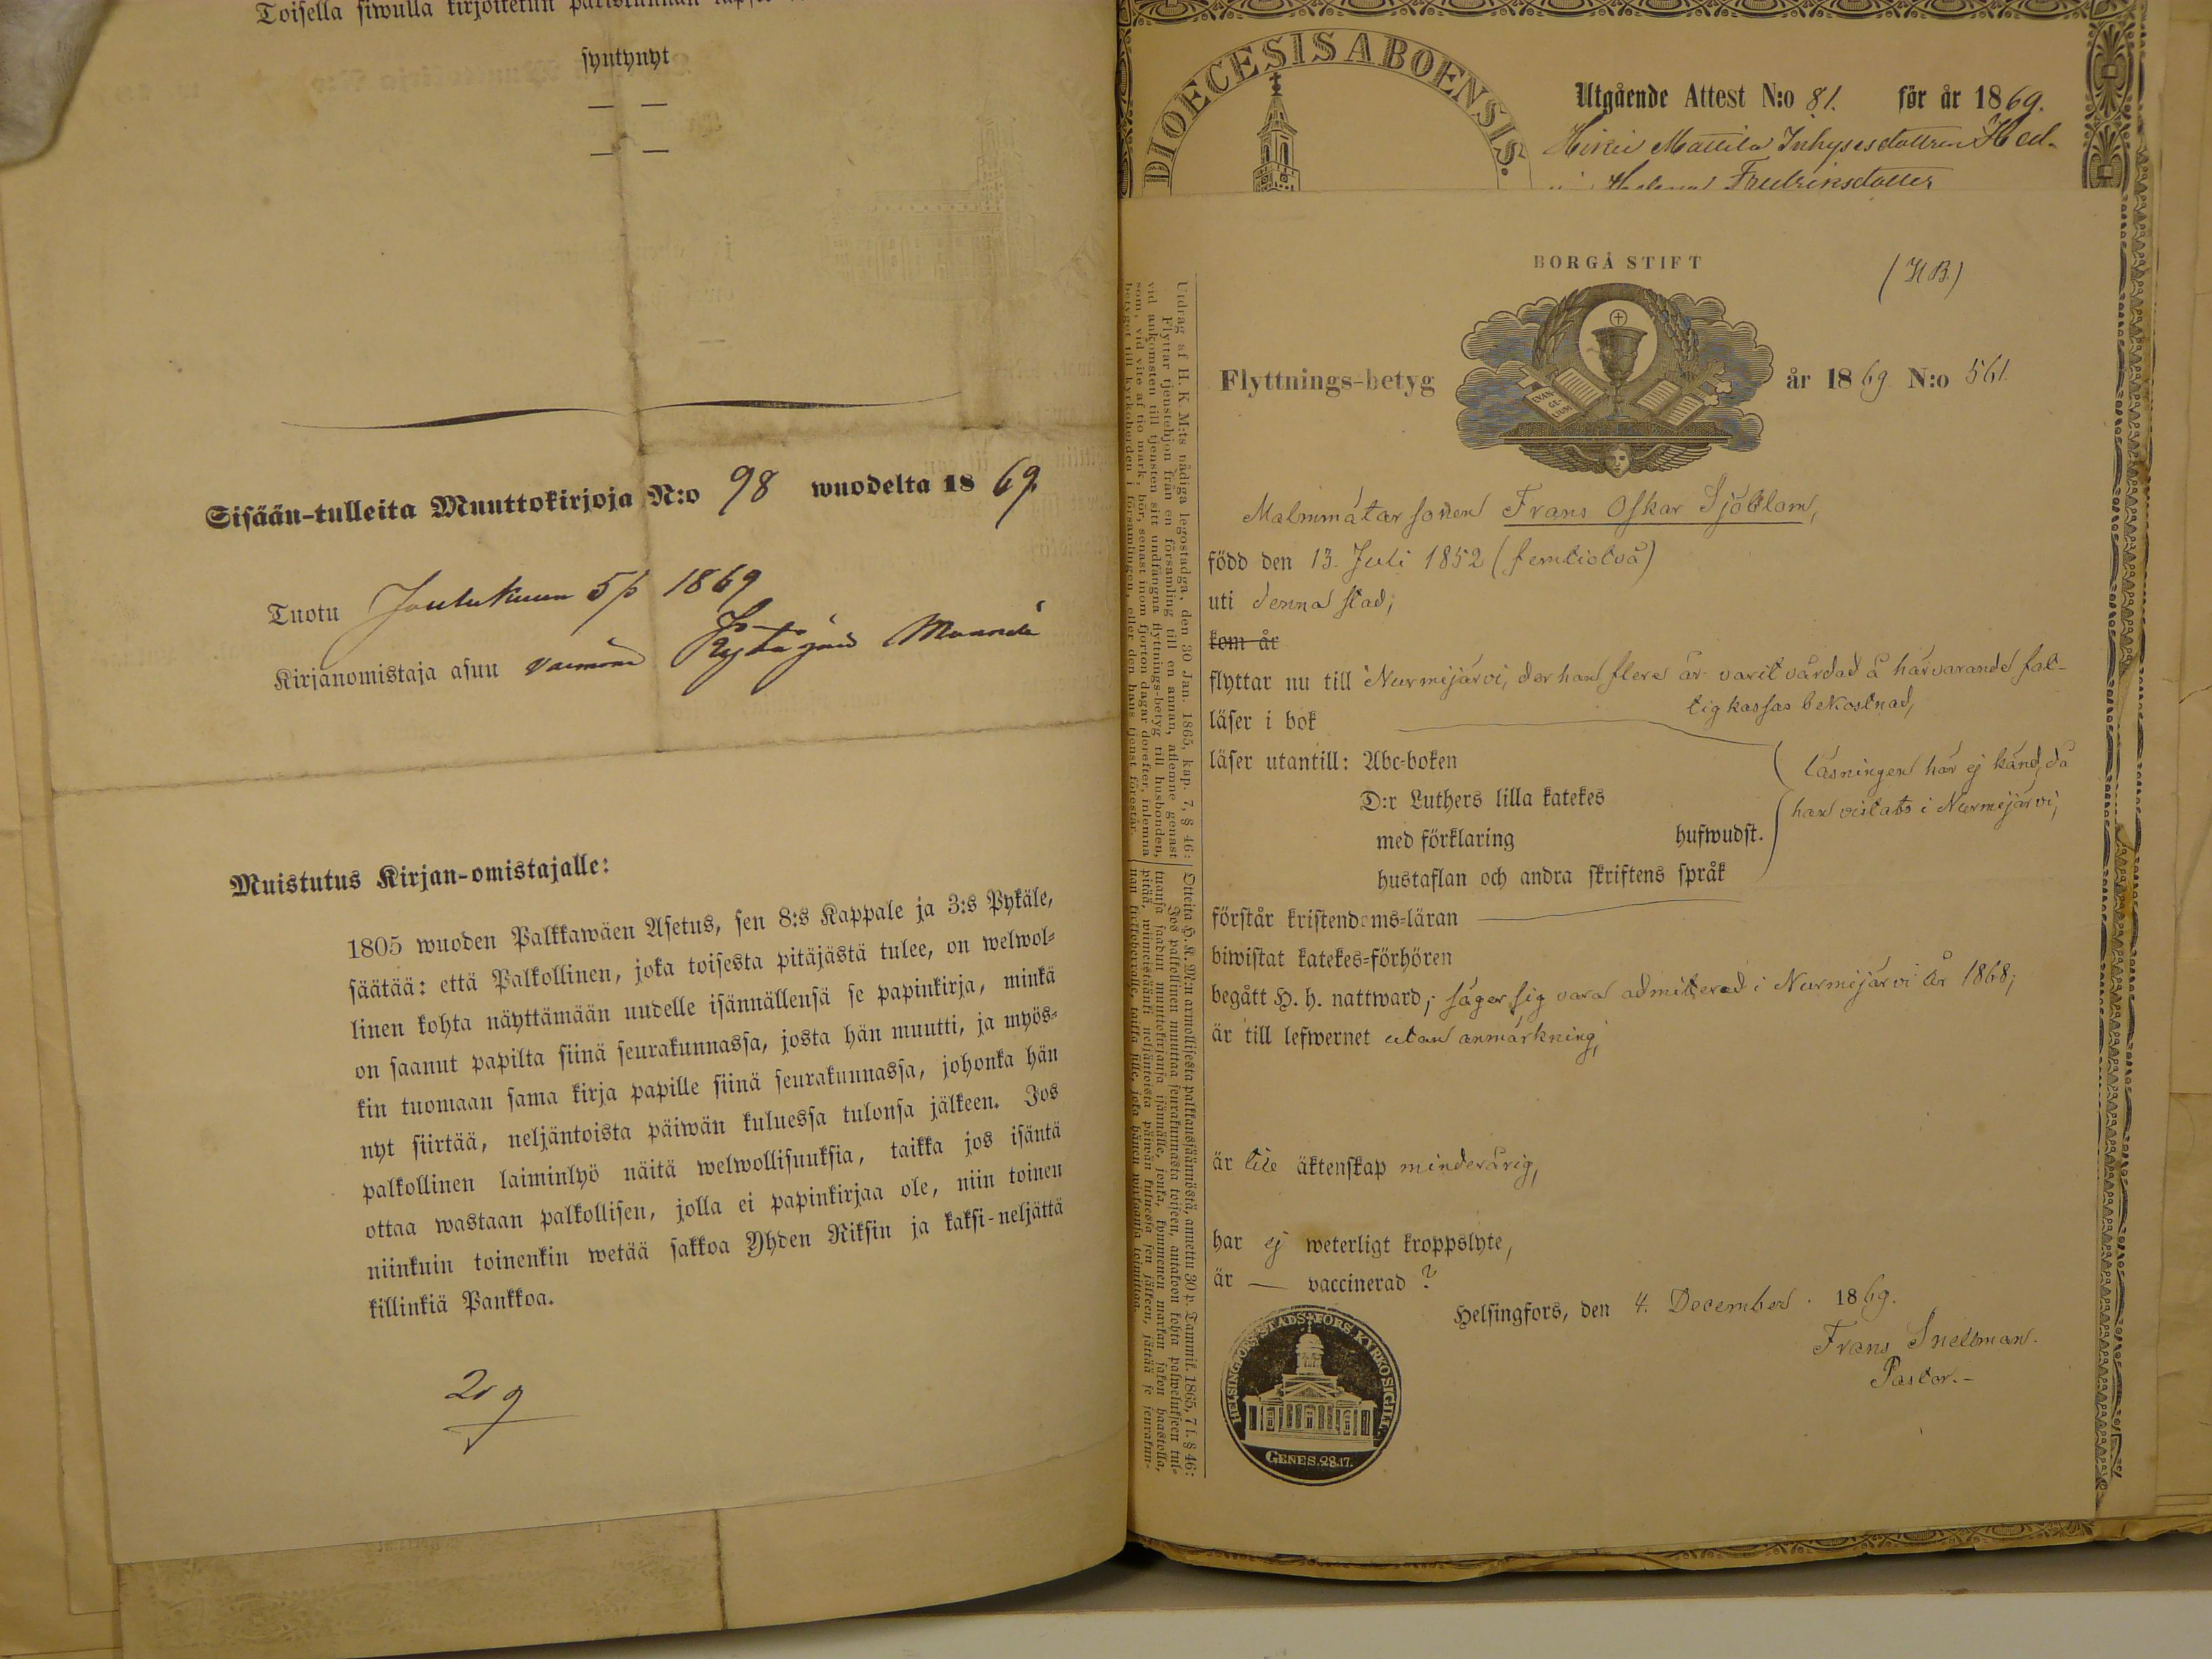 Toisella siwulla kirjoitetun
syntynyt
— —
— —
Sisään-tulleita Muuttokirjoja N:o 98 wuodelta 1869
Tuotu Joulukuun 5 p 1869
Kirjanomistaja asuu
Muistutus Kirjan-omistajalle:
1805 wuoden Palkkawäen Asetus, sen 8:s Kappale ja 3:s Pykäle,
säätää: että Palkollinen, joka toisesta pitäjästä tulee, on welwol-
linen kohta näyttämään uudelle isännällensä se papinkirja, minkä
on saanut papilta siinä seurakunnassa, josta hän muutti, ja myös-
kin tuomaan sama kirja papille siinä seurakunnassa, johonka hän
nyt siirtää, neljäntoista päiwän kuluessa tulonsa jälkeen. Jos
palkollinen laiminlyö näitä welwollisuuksia, taikka jos isäntä
ottaa wastaan palkollisen, jolla ei papinkirjaa ole, niin toinen
niinkuin toinenkin wetää sakkoa Yhden Riksin ja kaksi-neljättä
killinkiä Pankkoa.
DIOECESIS ABOENSIS.
Utgående Attest N:o 81. för år 1869.
Mattila Inhysesdottren Hed-
Fredriksdotter
BORGÅ STIFT
(HB)
Flyttnings-betyg år 1869 N:o 561.
EVAN-
GE-
LIUM
Malmmätarsonen Frans Oskar Sjöblom,
född den 13. Juli 1852 (femtiotvå)
uti denna stad;
kom år
flyttar nu till Nurmijärvi, der han flere år varit vårdad å härvarande fat-
tigkassas bekostnad,
läser i bok
läser utantill: Abc-boken
D:r Luthers lilla katekes
med förklaring hufwudst.
hustaflan och andra skriftens språk
läsningen här ej känd, då
han vistats i Nurmijärvi;
förstår kristendoms-läran
biwistat katekes-förhören
begått H. H. nattward; säger sig vara admitterad i Nurmijärvi år 1868;
är till lefwernet utan anmärkning;
är till äktenskap minderårig,
har ej weterligt kroppslyte,
är — vaccinerad ?
Helsingfors, den 4. December. 1869.
Frans Snellman.
Pastor.-
HELSINGFORS STADS FÖRS. KYRKOSIGILL.
GENES. 28.17.
Utdrag af H. K. M:ts nådiga legostadga, den 30 Jan. 1865, kap. 7, § 46:
Flyttar tjenstehjon från en församling till en annan, aflemne genast
vid ankomsten till tjensten sitt undfångna flyttnings-betyg till husbonden,
som, vid vite af tio mark, bör, senast inom fjorton dagar derefter, inlemna
betyget till kyrkoherden i församlingen, eller den hans tjenst förestår.